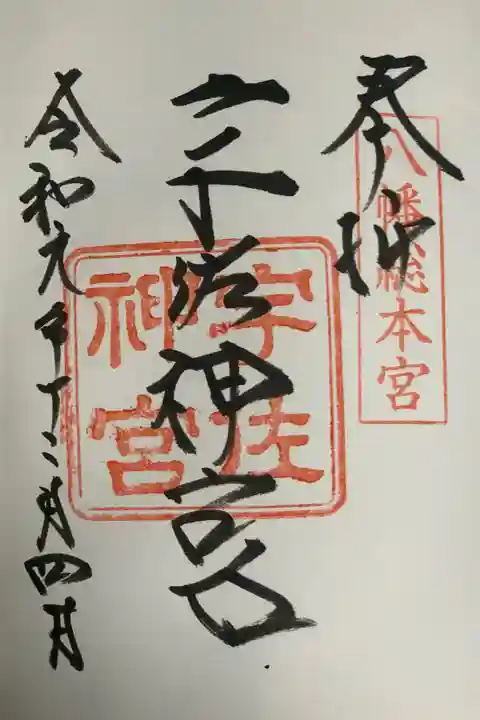 奉拝
八幡総本宮
宇佐神宮
宇佐
神宮
令和元年十二月四日